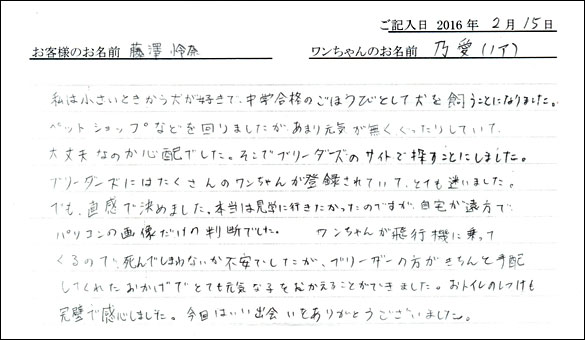 ご記入日 2016年 2月 15日
お客様のお名前 藤澤 怜奈 ワンちゃんのお名前 乃愛(ノア)
私は小さいときから犬が好きで、中学合格のごほうびとして犬を飼うことになりました。
ペットショップなどを回りましたが、あまり元気が無くぐったりしていて、
大丈夫なのか心配でした。そこでブリーダーズのサイトで探すことにしました。
ブリーダーズにはたくさんのワンちゃんが登録されていて、とても迷いました。
でも、直感で決めました。本当は見学に行きたかったのですが、自宅が遠方で、
パソコンの画像だけの判断でした。 ワンちゃんが飛行機に乗って
くるので、死んでしまわないか不安でしたが、ブリーダーの方がきちんと手配
してくれたおかげでとても元気な子をむかえることができました。おトイレのしつけも
完璧で感心しました。今回はいい出会いをありがとうございました。